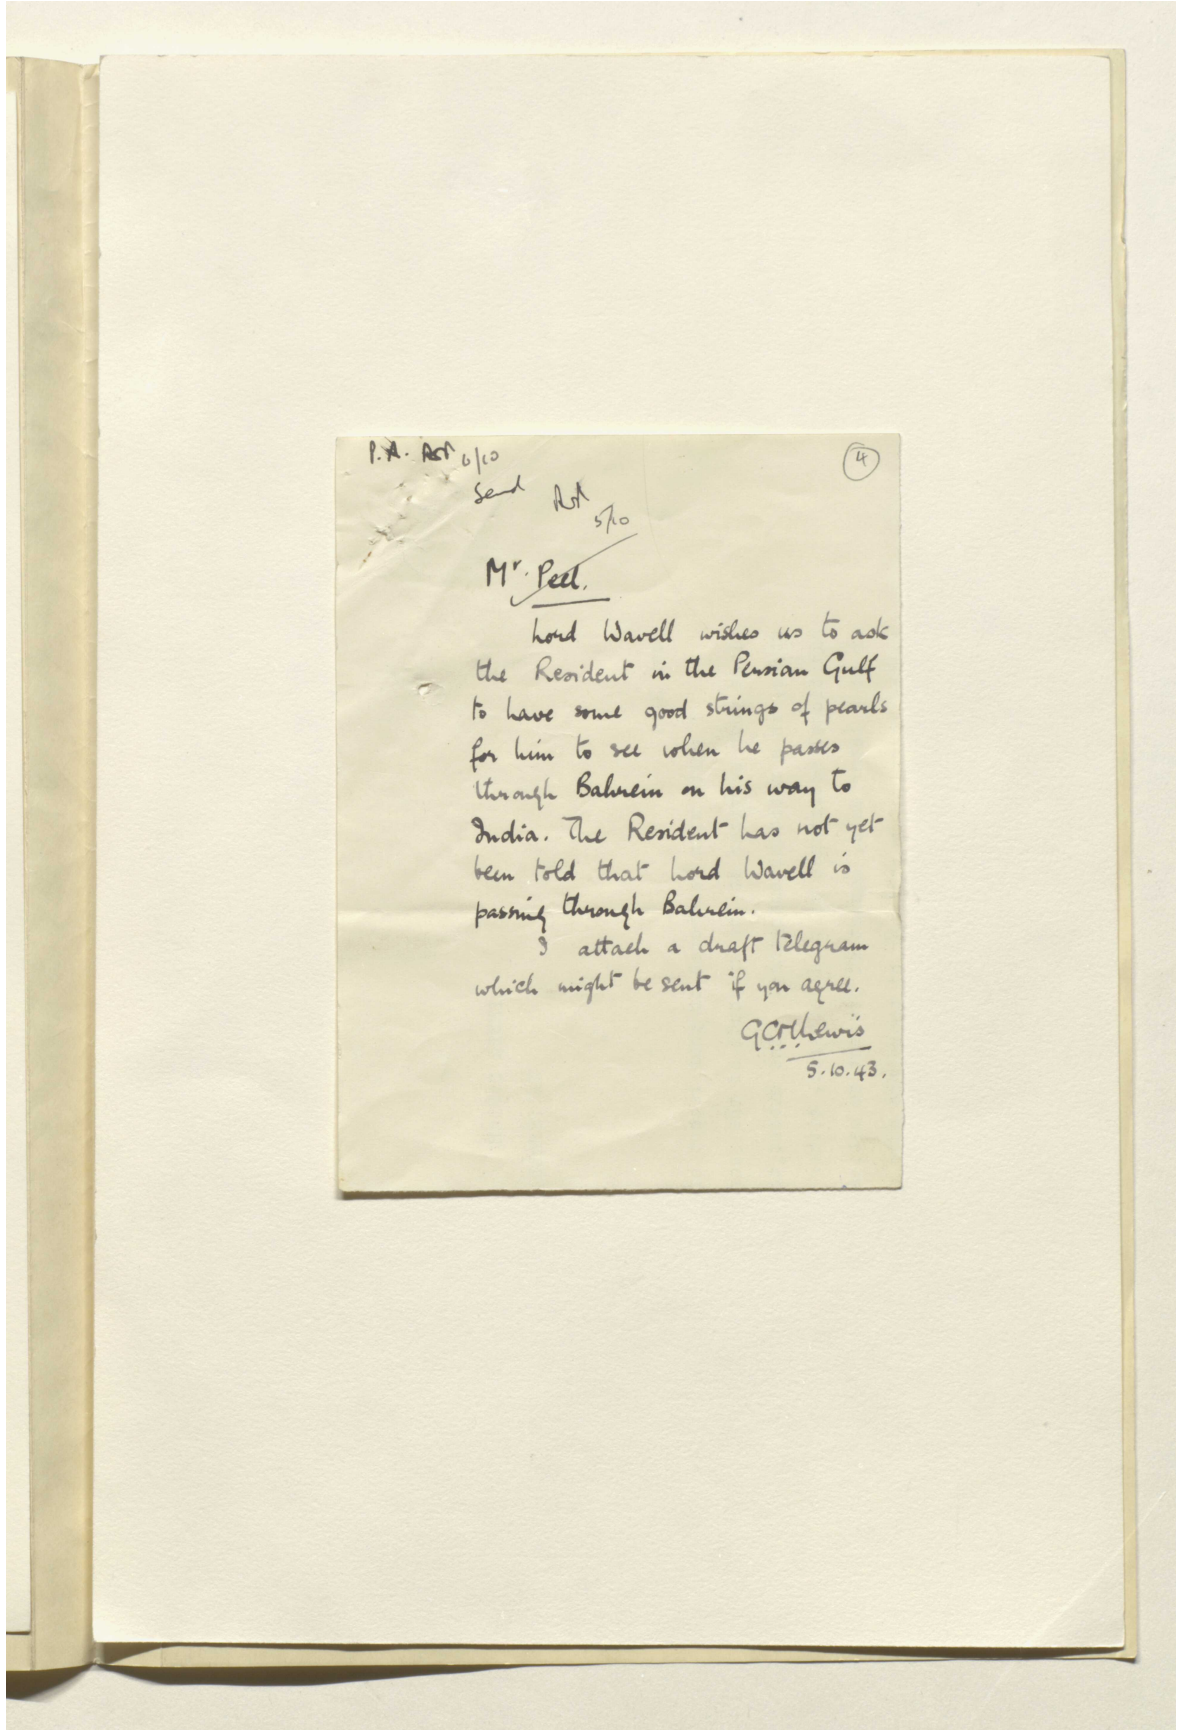 P.A. 6/10
4
Send
5/10
Mr. Peel.
Lord Wavell wishes us to ask
the Resident in the Persian Gulf
to have some good strings of pearls
for him to see when he passes
through Bahrein on his way to
India. The Resident has not yet
been told that Lord Wavell is
passing through Bahrein.
I attach a draft telegram
which might be sent if you agree.
5.10.43.